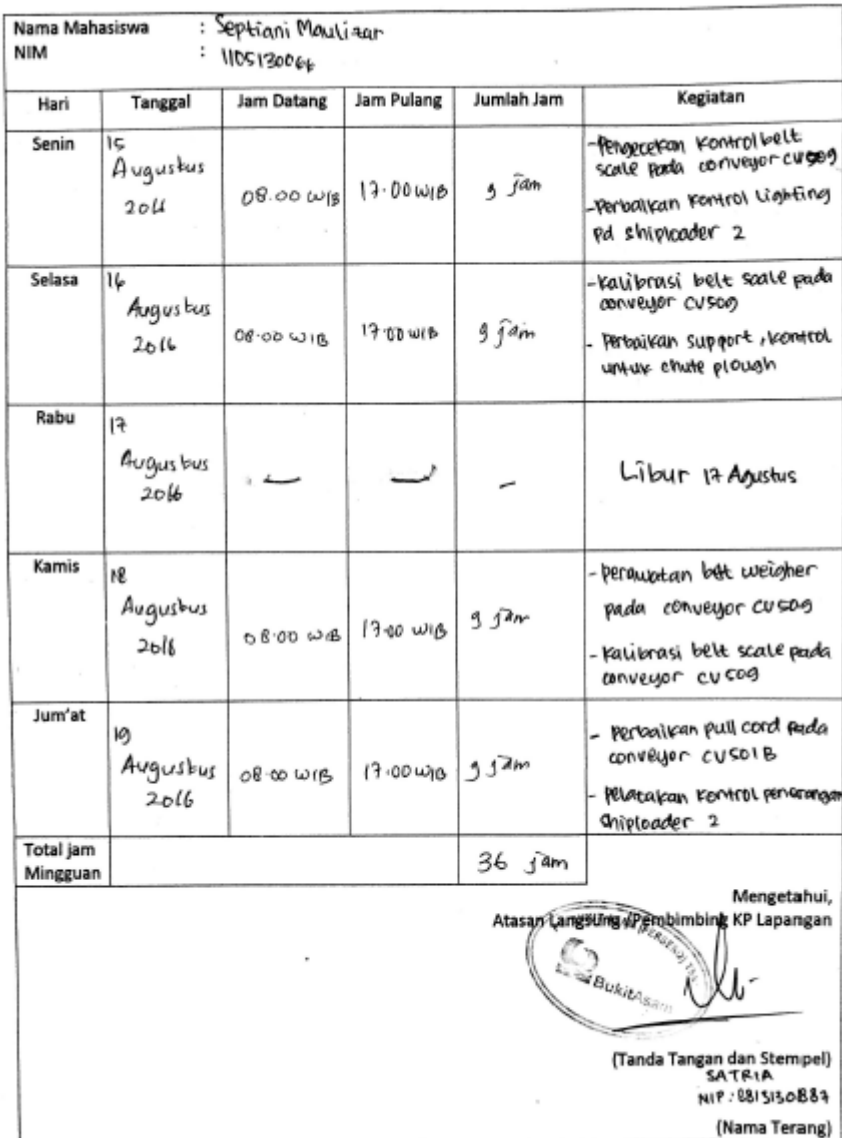 Nama Mahasiswa : Septiani Maulizar
NIM : 110513006
Hari Tanggal Jam Datang Jam Pulang Jumlah Jam Kegiatan
Senin 15 Augustus 2016 08.00 WIB 17.00 WIB 9 jam
- Pengecekan kontrol belt
scale pada conveyor CV509
- Perbaikan kontrol Lighting
pd shiploader 2
Selasa 16 Augustus 2016 08.00 WIB 17.00 WIB 9 jam
- Kalibrasi belt scale pada
conveyor CV509
- Perbaikan support, kontrol
untuk chute plough
Rabu 17 Augustus 2016 - - - Libur 17 Agustus
Kamis 18 Augustus 2016 08.00 WIB 17.00 WIB 9 jam
- perawatan belt weigher
pada conveyor CV509
- Kalibrasi belt scale pada
conveyor CV509
Jum'at 19 Augustus 2016 08.00 WIB 17.00 WIB 9 jam
- Perbaikan pull cord pada
conveyor CV501B
- Pelacakan kontrol penerangan
shiploader 2
Total jam
Mingguan 36 jam
Mengetahui,
Atasan Langsung /Pembimbing KP Lapangan
(PERSERO) Tbk
BukitAsam
(Tanda Tangan dan Stempel)
SATRIA
NIP : 8813130887
(Nama Terang)